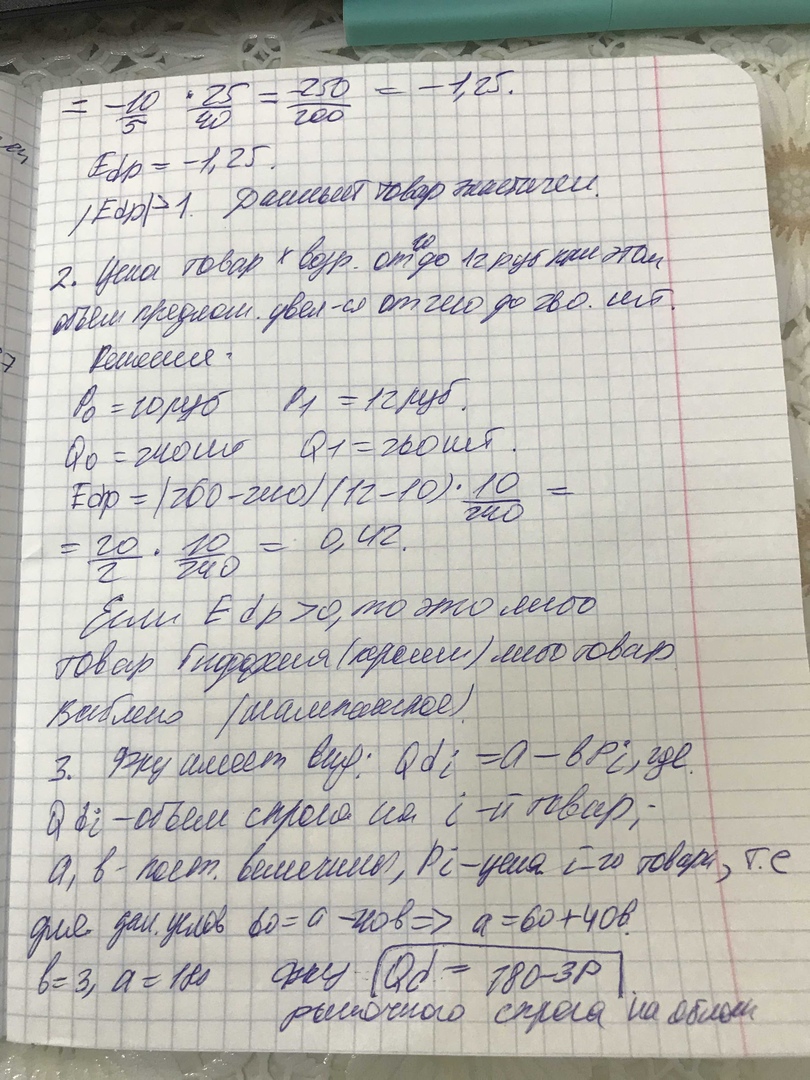 = -10/5 · 25/40 = -250/200 = -1,25.
Edp = -1,25.
|Edp|>1. Данный товар эластичен.
2. Цена товар x возр. от 10 до 12 руб при этом
объем предлож. увел-ся от 240 до 260. шт.
Решение:
P0 = 10 руб P1 = 12 руб.
Q0 = 240 шт Q1 = 260 шт.
Edp = (260-240)/(12-10) · 10/240 =
= 20/2 · 10/240 = 0,42.
Если Edp>0, то это либо
товар Гиффена (хороший) либо товар
Веблена (шампанское)
3. Фку имеет вид: Qdi = a - bPi, где
Qdi - объем спроса на i-й товар,
a, b - пост. величины, Pi - цена i-го товара, т.е
для дан. услов 60 = a - 40b => a = 60 + 40b.
b=3, a = 180 фку Qd = 180-3P
рыночного спроса на